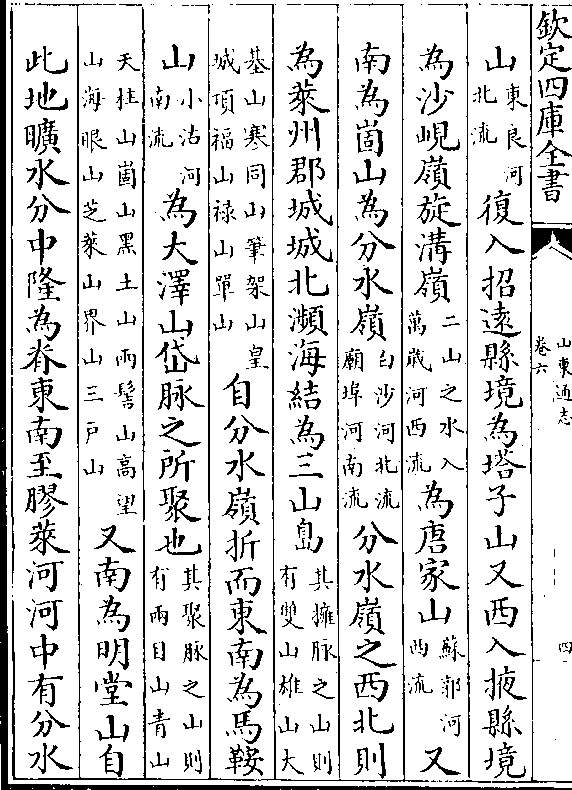 欽定四庫全書
山東通志
卷六
四
山東良河北流復入招遠縣境為塔子山又西入掖縣境
為沙峴嶺旋溝嶺二山之水入萬歲河西流為唐家山蘇郭河西流又
南為崮山為分水嶺白沙河北流廟埠河南流分水嶺之西北則
為萊州郡城城北瀕海結為三山島其擁脉之山則有雙山雄山大
基山寒同山筆架山皇城頂福山祿山單山自分水嶺折而東南為馬鞍
山小沽河南流為大澤山岱脉之所聚也其聚脉之山則有兩目山青山
天柱山崮山黑土山兩髻山高望山海眼山芝萊山界山三戶山又南為明堂山自
此地曠水分中隆為脊東南至膠萊河河中有分水